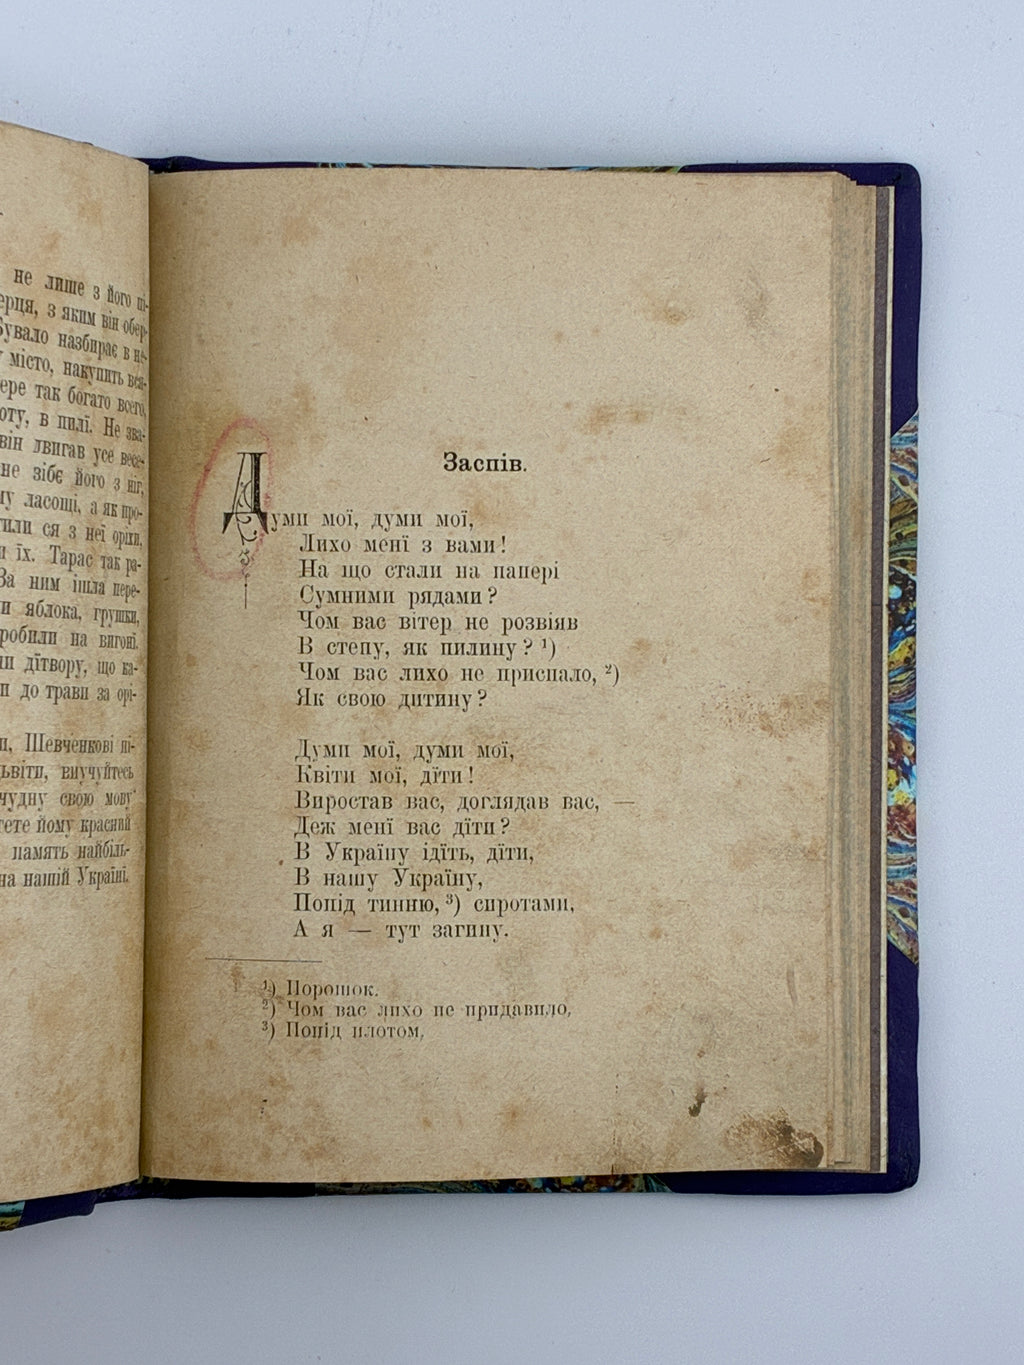 не лише з його пі-
з яким він обер-
назбирає в не-
місто, накупить вся-
так богато всего,
в пилї. Не зва-
він двигав усе весе-
не зібє його з ніг,
ласощі, а як про-
ся з неї оріхи,
їх. Тарас так ра-
За ним ішла пере-
яблока, грушки,
робили на вигонї.
дїтвору, що ка-
до трави за орі-
Шевченкові пі-
внучуйтесь
чудну свою мову
йому красний
память найбіль-
на нашій Українї.
Заспів.
Думи мої, думи мої,
Лихо менї з вами!
На що стали на папері
Сумними рядами?
Чом вас вітер не розвіяв
В степу, як пилину? ¹)
Чом вас лихо не приспало, ²)
Як свою дитину?
Думи мої, думи мої,
Квіти мої, дїти!
Виростав вас, доглядав вас, —
Деж менї вас дїти?
В Україну ідїть, дїти,
В нашу Україну,
Попід тинню, ³) сиротами,
А я — тут загину.
¹) Порошок.
²) Чом вас лихо не придавило,
³) Попід плотом,